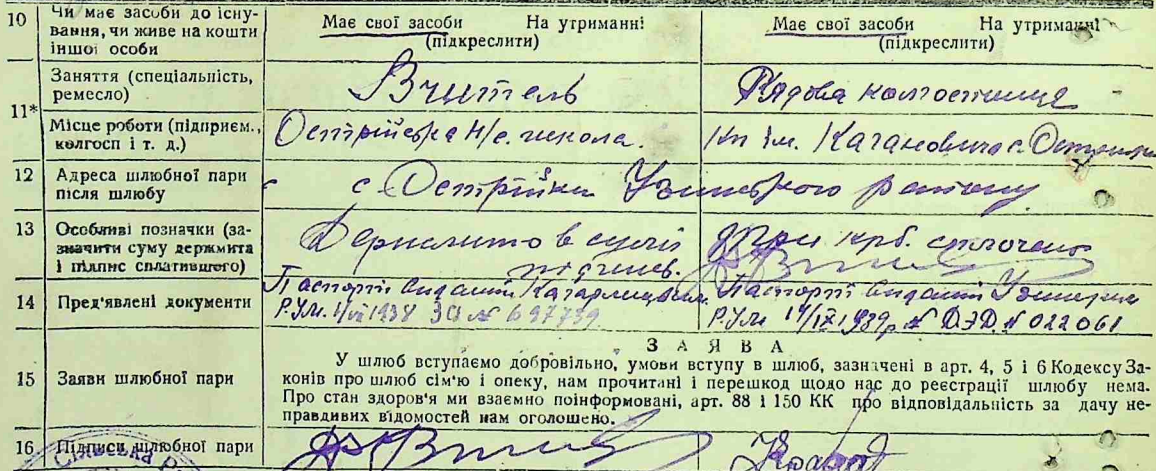 10 Чи має засоби до існування, чи живе на кошти іншої особи
Має свої засоби На утриманні
(підкреслити)
Має свої засоби На утриманні
(підкреслити)
11* Заняття (спеціальність, ремесло)
Вчитель
Рядова колгоспниця
Місце роботи (підприєм., колгосп і т. д.)
Острійська Н/с. школа.
Кп ім. Кагановича с. Острійки
12 Адреса шлюбної пари після шлюбу
с. Острійки Узинського району
13 Особливі позначки (зазначити суму держмита і підпис сплатившого)
Держмито в сумі
три крб. сплачено
14 Пред'явлені документи
Паспорти видани Кагарлицьким
Р.У.М. 1938 ЗА № 697739
Паспорти видани Узинським
Р.У.М. 14/IX 1939р № ДЭД № 022061
15 Заяви шлюбної пари
ЗАЯВА
У шлюб вступаємо добровільно, умови вступу в шлюб, зазначені в арт. 4, 5 і 6 Кодексу За-
конів про шлюб сім'ю і опеку, нам прочитані і перешкод щодо нас до реєстрації шлюбу нема.
Про стан здоров'я ми взаємно поінформовані, арт. 88 і 150 КК про відповідальність за дачу не-
правдивих відомостей нам оголошено.
16 Підписи шлюбної пари